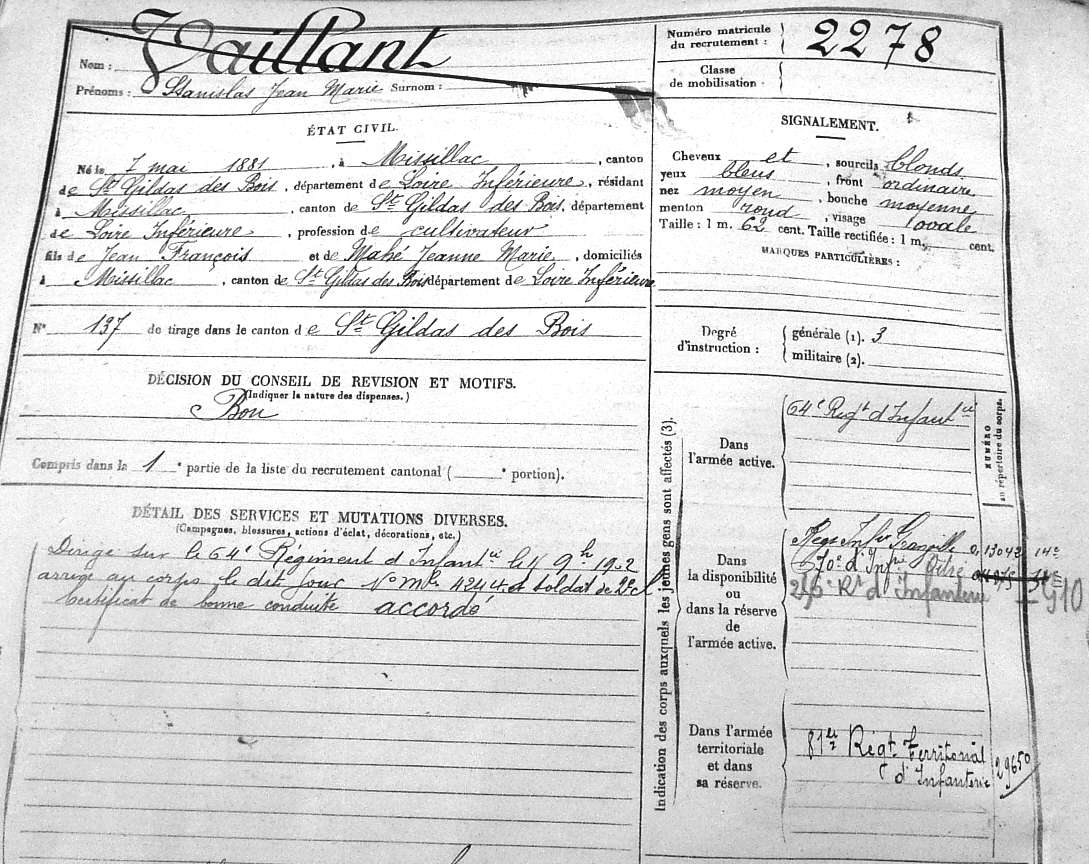 Nom : Vaillant
Prénoms : Stanislas Jean Marie Surnom :
ÉTAT CIVIL.
Né le 7 mai 1881, à Missillac, canton
de St Gildas des Bois, département de Loire Inférieure, résidant
à Missillac, canton de St Gildas des Bois, département
de Loire Inférieure, profession de cultivateur
fils de Jean François et de Mahé Jeanne Marie, domiciliés
à Missillac, canton de St Gildas des Bois département de Loire Inférieure
N° 137 de tirage dans le canton de St Gildas des Bois
DÉCISION DU CONSEIL DE REVISION ET MOTIFS.
(Indiquer la nature des dispenses.)
Bon
Compris dans la 1e partie de la liste du recrutement cantonal ( e portion).
DÉTAIL DES SERVICES ET MUTATIONS DIVERSES.
(Campagnes, blessures, actions d'éclat, décorations, etc.)
Dirigé sur le 64e Régiment d'Infantie le 9bre
arrivé au corps le dit jour Nº Mle 4244 et soldat de 2e cl
Certificat de bonne conduite accordé
Numéro matricule
du recrutement : 2278
Classe
de mobilisation
SIGNALEMENT.
Cheveux et, sourcils blonds
yeux bleus, front ordinaire
nez moyen, bouche moyenne
menton rond, visage ovale
Taille : 1 m. 62 cent. Taille rectifiée : 1 m. cent.
MARQUES PARTICULIÈRES :
Degré
d'instruction :
générale (1). 3
militaire (2).
Indication des corps auxquels les jeunes gens sont affectés (3).
NUMÉRO
au répertoire du corps.
Dans
l'armée active.
64e Regt d'Infantie
Dans
la disponibilité
ou
dans la réserve
de
l'armée active.
13042
70e d'Infie Vitré
d'Infanterie 910
Dans l'armée
territoriale
et dans
sa réserve.
81e Régt Territorial
d'Infanterie
29650